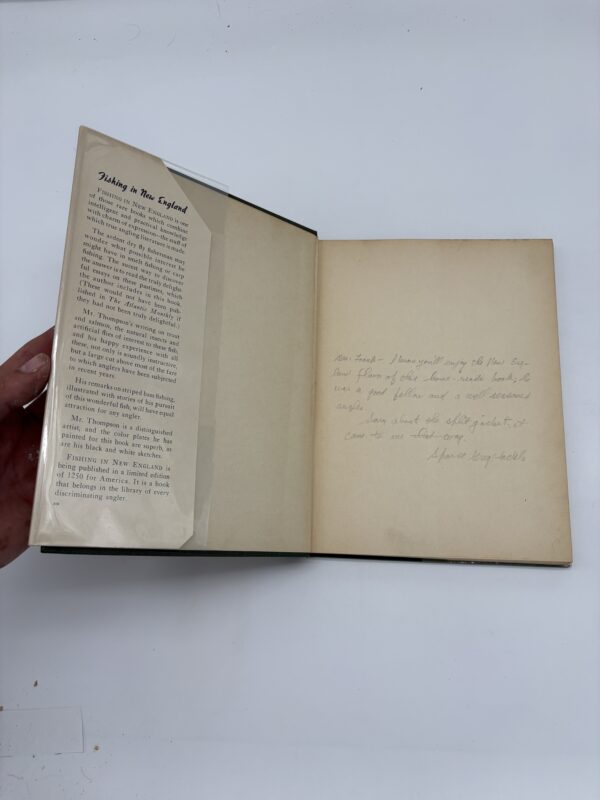 Fishing in New England
FISHING IN NEW ENGLAND is one
of those rare books which combine
intelligent and practical knowledge
with charm of expression—the stuff of
which true angling literature is made.
The ardent dry fly fisherman may
wonder what possible interest he
might have in smelt fishing or carp
fishing. The surest way to discover
the answer is to read the truly delight-
ful essays on these pastimes, which
the author includes in this book.
(These would not have been pub-
lished in The Atlantic Monthly if
they had not been truly delightful.)
Mr. Thompson's writing on trout
and salmon, the natural insects and
artificial flies of interest to these fish,
and his happy experience with all
these, not only is soundly instructive,
but a large cut above most of the fare
to which anglers have been subjected
in recent years.
His remarks on striped bass fishing,
illustrated with stories of his pursuit
of this wonderful fish, will have equal
attraction for any angler.
Mr. Thompson is a distinguished
artist, and the color plates he has
painted for this book are superb, as
are his black and white sketches.
FISHING IN NEW ENGLAND is
being published in a limited edition
of 1250 for America. It is a book
that belongs in the library of every
discriminating angler.
I know you'll enjoy the New Eng-
of this book, he
was a good fellow and a well seasoned
angler.
about the split jacket, it
came to me that way.
Sparse Grey Hackle